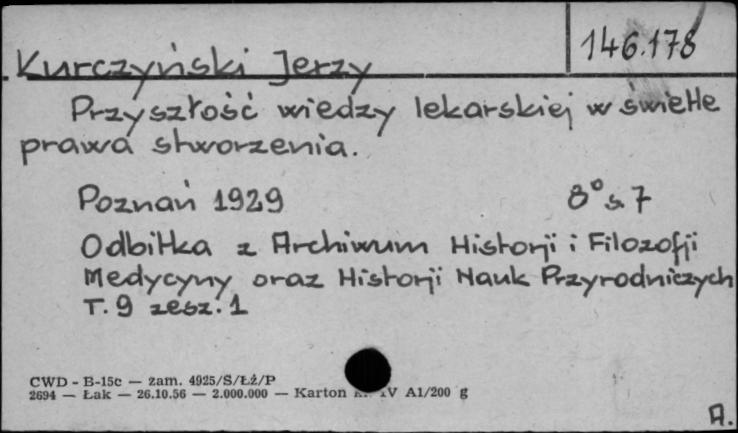 146.178
Kurczyński Jerzy
Przyszłość wiedzy lekarskiej w świetle
prawa stworzenia.
Poznań 1929 8° s. 7
Odbitka z Archiwum Historji i Filozofji
Medycyny oraz Historji Nauk Przyrodniczych
T. 9 zesz. 1
CWD - B-15c — zam. 4925/S/Łż/P
2694 — Łak — 26.10.56 — 2.000.000 — Karton IV A1/200 g
A.